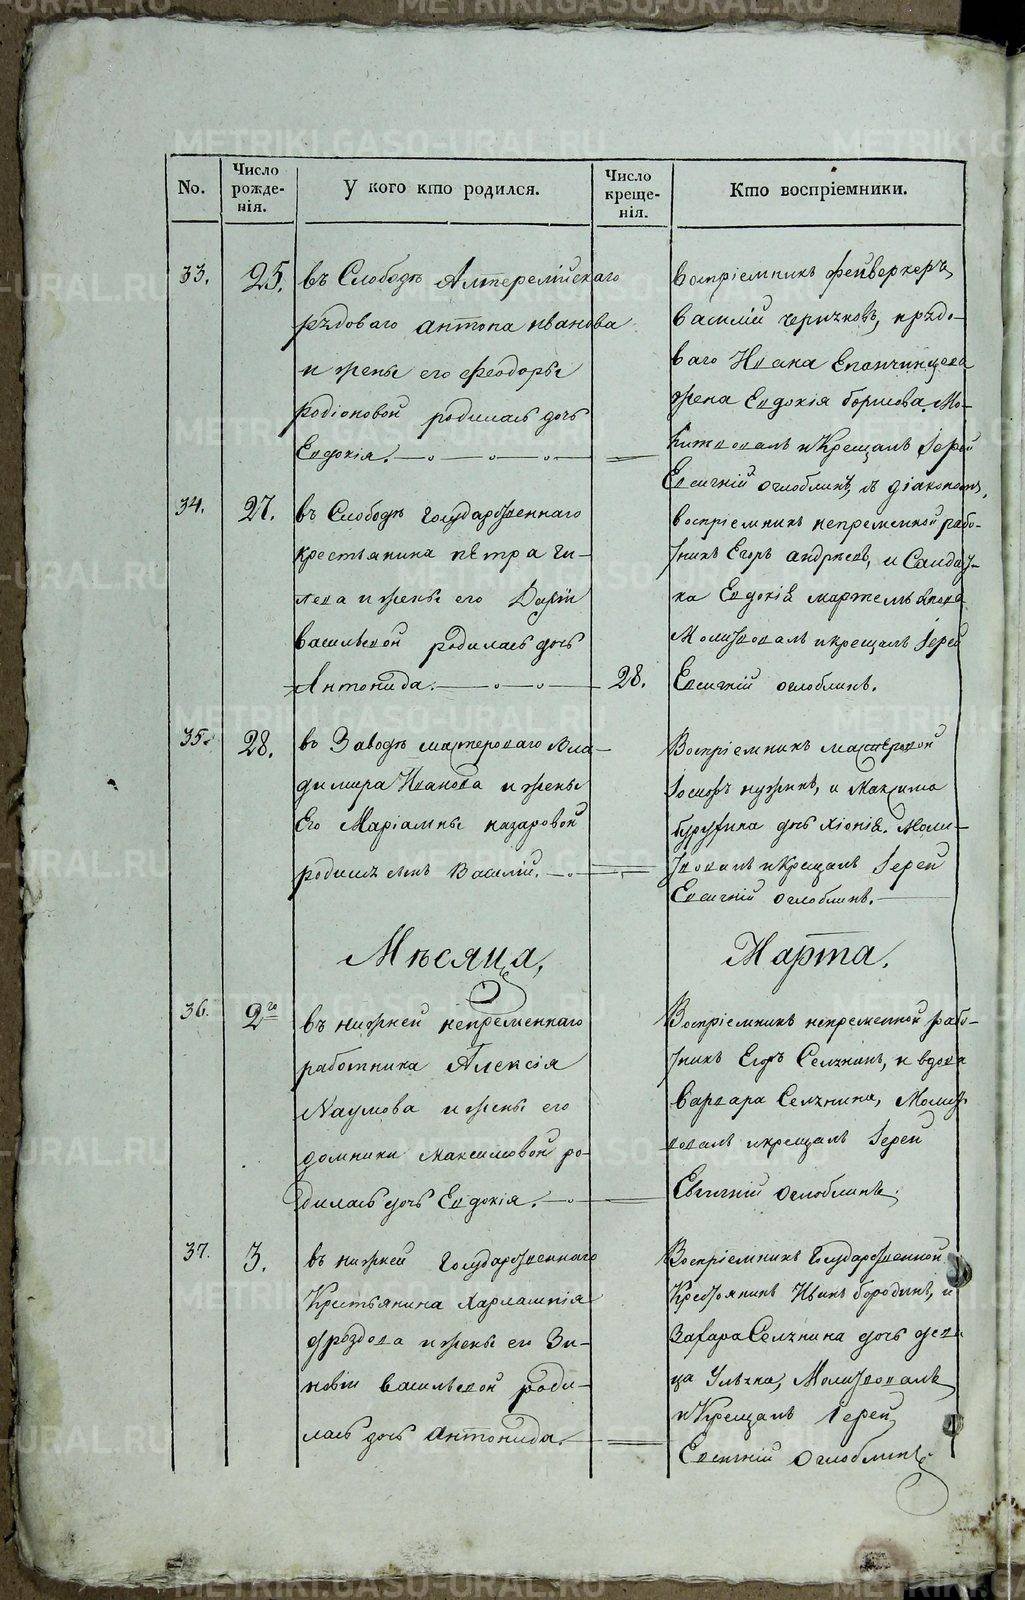 METRIKI.GASO-URAL.RU
No.
Число рожде-нія.
У кого кто родился.
Число креще-нія.
Кто воспріемники.
33.
25.
въ Слободѣ
рядоваго Антона Иванова
и жены его Феодоры
Родіоновой родилась дочь
Евдокія.
Воспріемникъ фейверкеръ
Василій рядо-
ваго Ивана Епанчинцова
жена Евдокія Борисова. Мо-
литвовалъ и Крещалъ Іерей
Евсигній Оглоблинъ, съ діакономъ,
34.
27.
въ Слободѣ Государственнаго
крестьянина Петра Ги-
лева и жены его Даріи
Васильевой родилась дочь
Антонида.
28.
воспріемникъ непременной рабо-
тникъ Егоръ Андреевъ, и Салдат-
ка Евдокія Мартемьянова
Молитвовалъ и крещалъ Іерей
Евсигній Оглоблинъ.
35.
28.
въ Заводѣ мастероваго Вла-
димира Иванова и жены
Его Маріамны Назаровой
родился сынъ Василій.
Воспріемникъ мастеровой
Іосифъ и Максима
дочь Хіонія. Моли-
твовалъ и Крещалъ Іерей
Евсигній Оглоблинъ.
Мѣсяца,
Марта.
36.
2го
въ нижней непременнаго
работника Алексія
Наумова и жены его
Домники Максимовой ро-
дилась дочь Евдокія.
Воспріемникъ непременной рабо-
тникъ Егоръ Селянинъ, и вдова
Варвара Селянина, Молит-
вовалъ и крещалъ Іерей
Евсигній Оглоблинъ.
37.
3.
въ нижней Государственнаго
Крестьянина Харлампія
Дроздова и жены его Зи-
новіи Васильевой роди-
лась дочь Антонида.
Воспріемникъ Государственной
Крестьянинъ Бородинъ, и
Захара Селянина дочь деви-
ца Ульяна, Молитвовалъ
и Крещалъ Іерей
Евсигній Оглоблинъ.